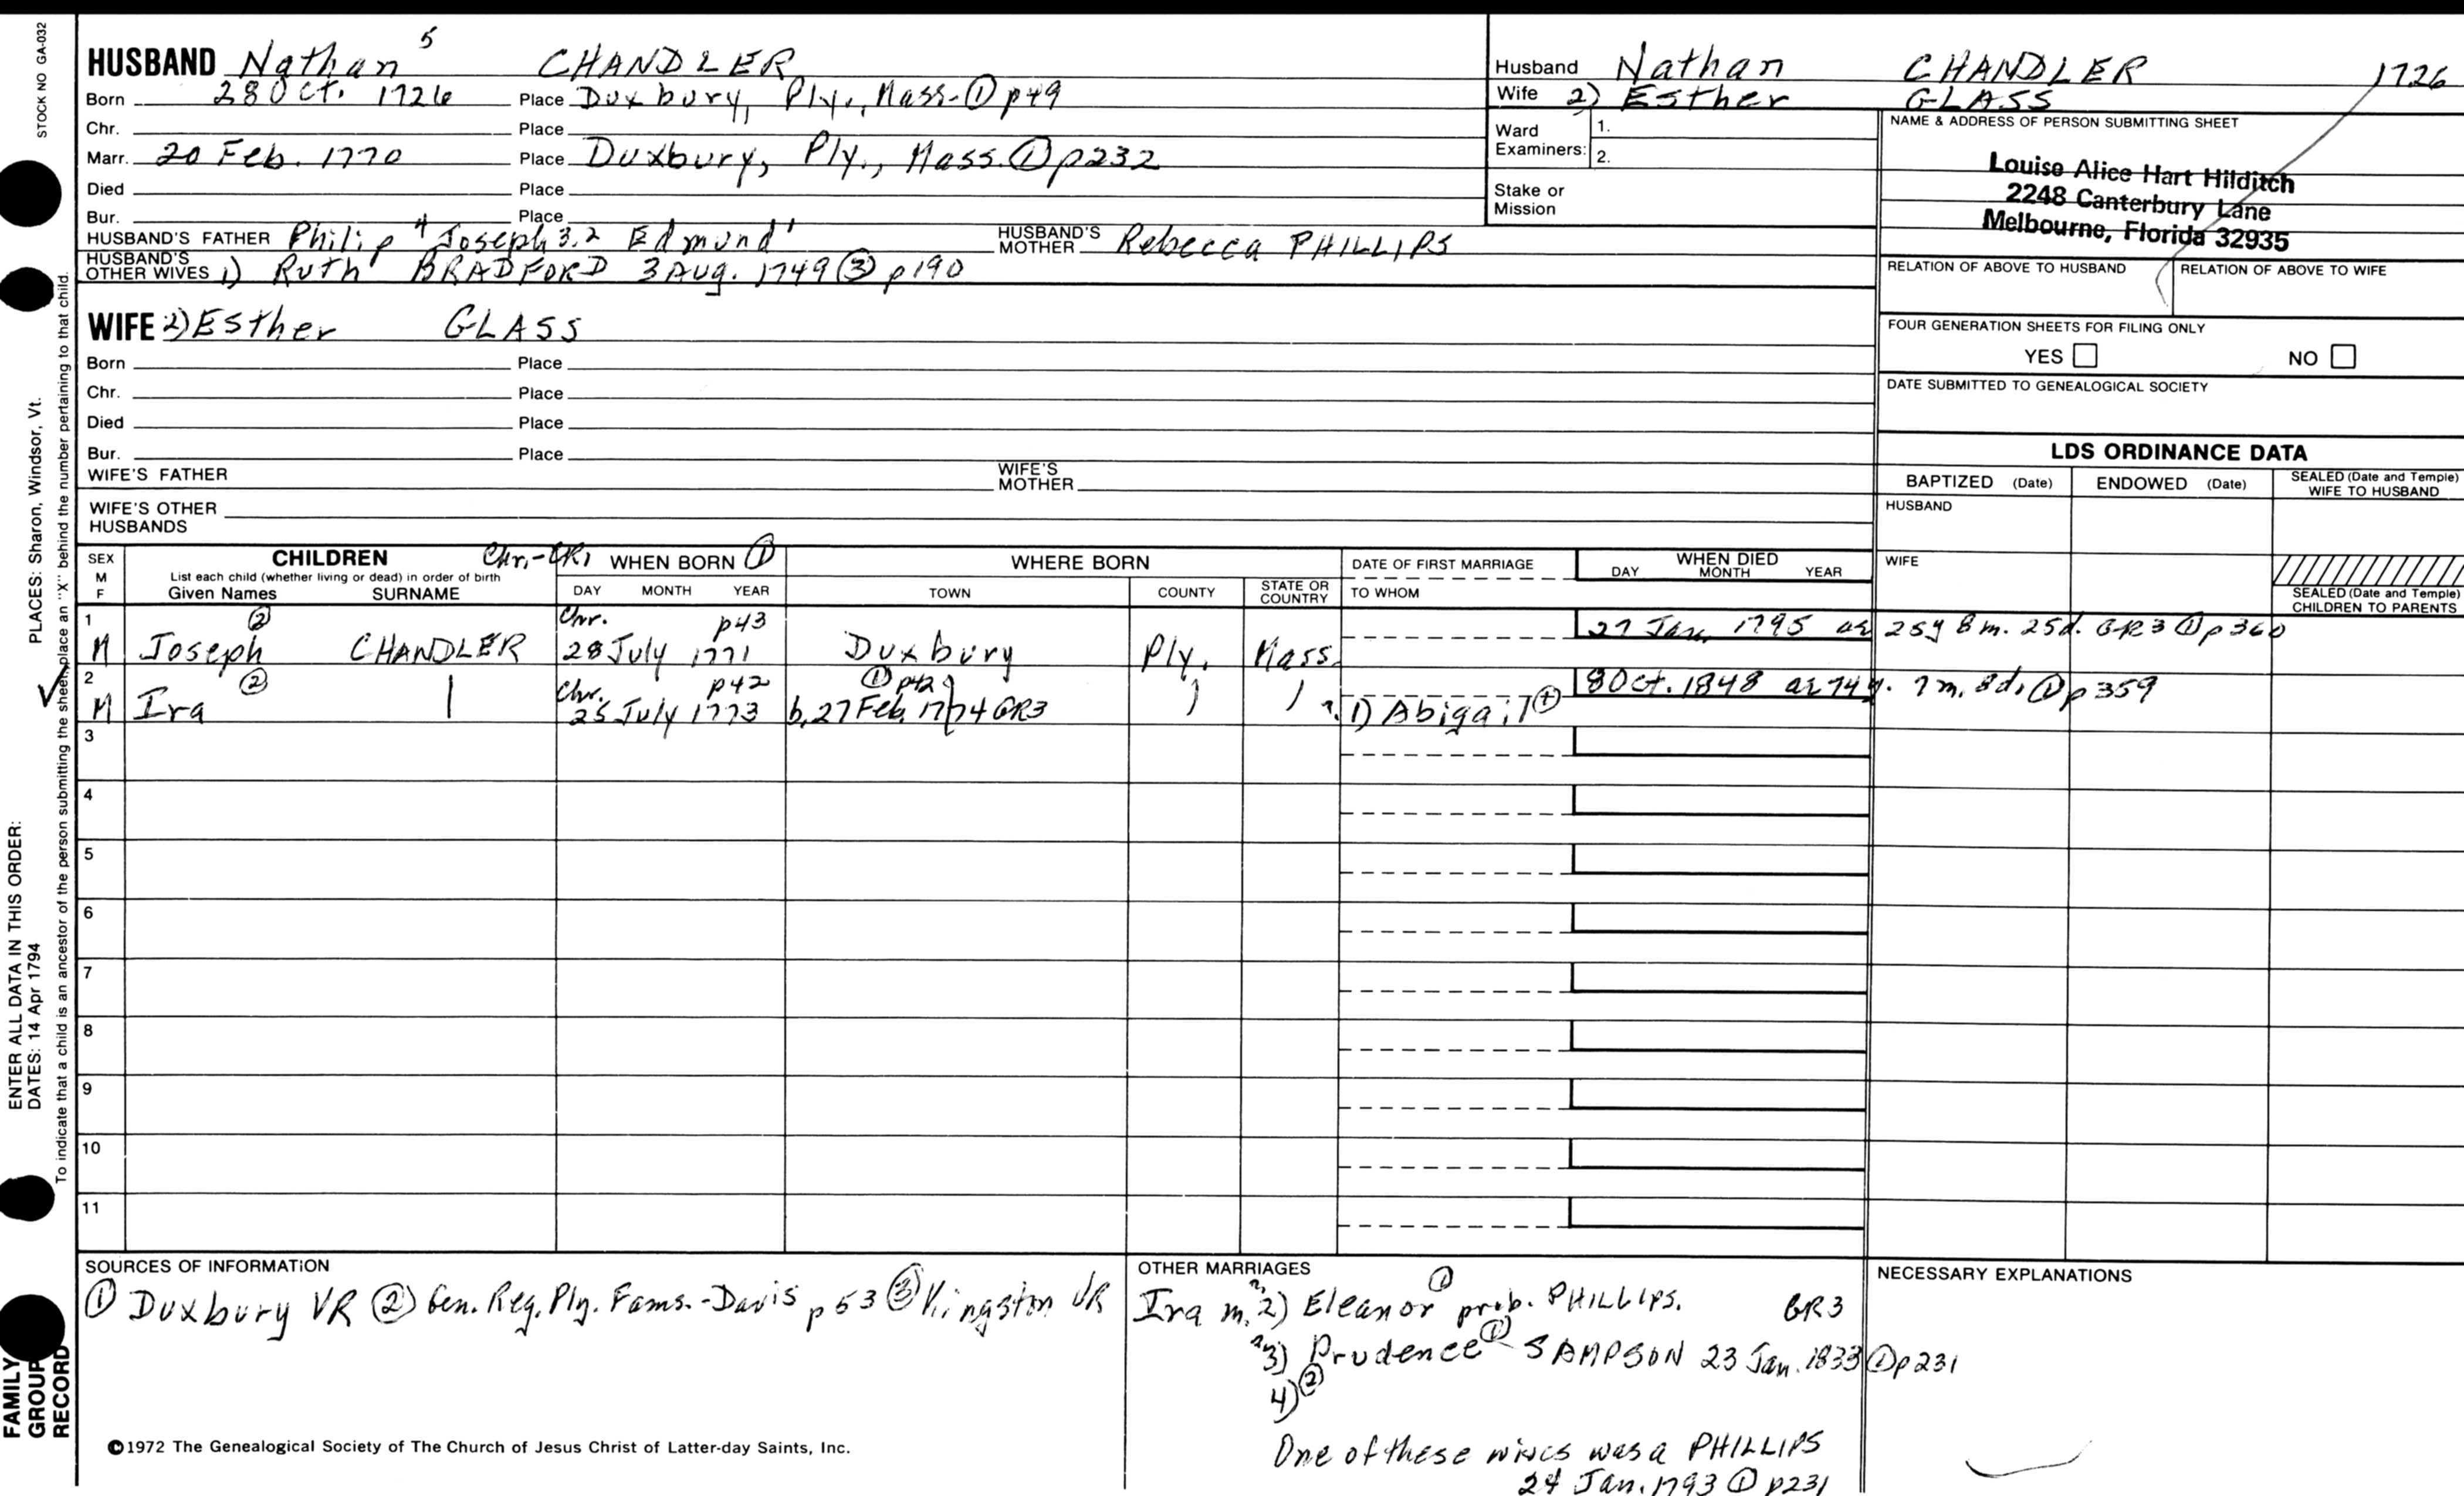 STOCK NO GA-032
HUSBAND Nathan 5 CHANDLER
Born 28 Oct. 1726 Place Duxbury, Ply., Mass-① p49
Chr. Place
Marr. 20 Feb. 1770 Place Duxbury, Ply., Mass. ① p232
Died Place
Bur. Place
HUSBAND'S FATHER Philip 4 Joseph 3,2 Edmund 1 HUSBAND'S MOTHER Rebecca PHILLIPS
HUSBAND'S OTHER WIVES 1) Ruth BRADFORD 3 Aug. 1749 ③ p190
WIFE 2) Esther GLASS
Born Place
Chr. Place
Died Place
Bur. Place
WIFE'S FATHER WIFE'S MOTHER
WIFE'S OTHER HUSBANDS
Husband Nathan CHANDLER 1726
Wife 2) Esther GLASS
Ward Examiners: 1.
2.
Stake or Mission
NAME & ADDRESS OF PERSON SUBMITTING SHEET
Louise Alice Hart Hilditch
2248 Canterbury Lane
Melbourne, Florida 32935
RELATION OF ABOVE TO HUSBAND RELATION OF ABOVE TO WIFE
FOUR GENERATION SHEETS FOR FILING ONLY
YES NO
DATE SUBMITTED TO GENEALOGICAL SOCIETY
LDS ORDINANCE DATA
BAPTIZED (Date) ENDOWED (Date) SEALED (Date and Temple) WIFE TO HUSBAND
HUSBAND
WIFE
SEALED (Date and Temple) CHILDREN TO PARENTS
SEX M F CHILDREN Chr.-CR1 WHEN BORN ① WHERE BORN DATE OF FIRST MARRIAGE WHEN DIED
List each child (whether living or dead) in order of birth
Given Names SURNAME DAY MONTH YEAR TOWN COUNTY STATE OR COUNTRY TO WHOM DAY MONTH YEAR
1 ② Chr. p43 27 Jan. 1795 ae 25y 8m. 25d. GR3 ① p360
M Joseph CHANDLER 28 July 1771 Duxbury Ply. Mass.
2 ② Chr. p42 ① p42 8 Oct. 1848 ae 74y. 7m. 8d. ① p359
M Ira | 25 July 1773 b. 27 Feb. 1774 GR3 ) ) ?1) Abigail ⊕
3
4
5
6
7
8
9
10
11
SOURCES OF INFORMATION
① Duxbury VR ② Gen. Reg. Ply. Fams.-Davis p53 ③ Kingston VR
©1972 The Genealogical Society of The Church of Jesus Christ of Latter-day Saints, Inc.
OTHER MARRIAGES
Ira m. ?2) Eleanor ① prob. PHILLIPS. GR3
?3) Prudence ① SAMPSON 23 Jan. 1833 ① p231
4) ②
One of these wives was a PHILLIPS
24 Jan. 1793 ① p231
NECESSARY EXPLANATIONS
PLACES: Sharon, Windsor, Vt.
ENTER ALL DATA IN THIS ORDER:
DATES: 14 Apr 1794
To indicate that a child is an ancestor of the person submitting the sheet, place an "X" behind the number pertaining to that child.
FAMILY GROUP RECORD